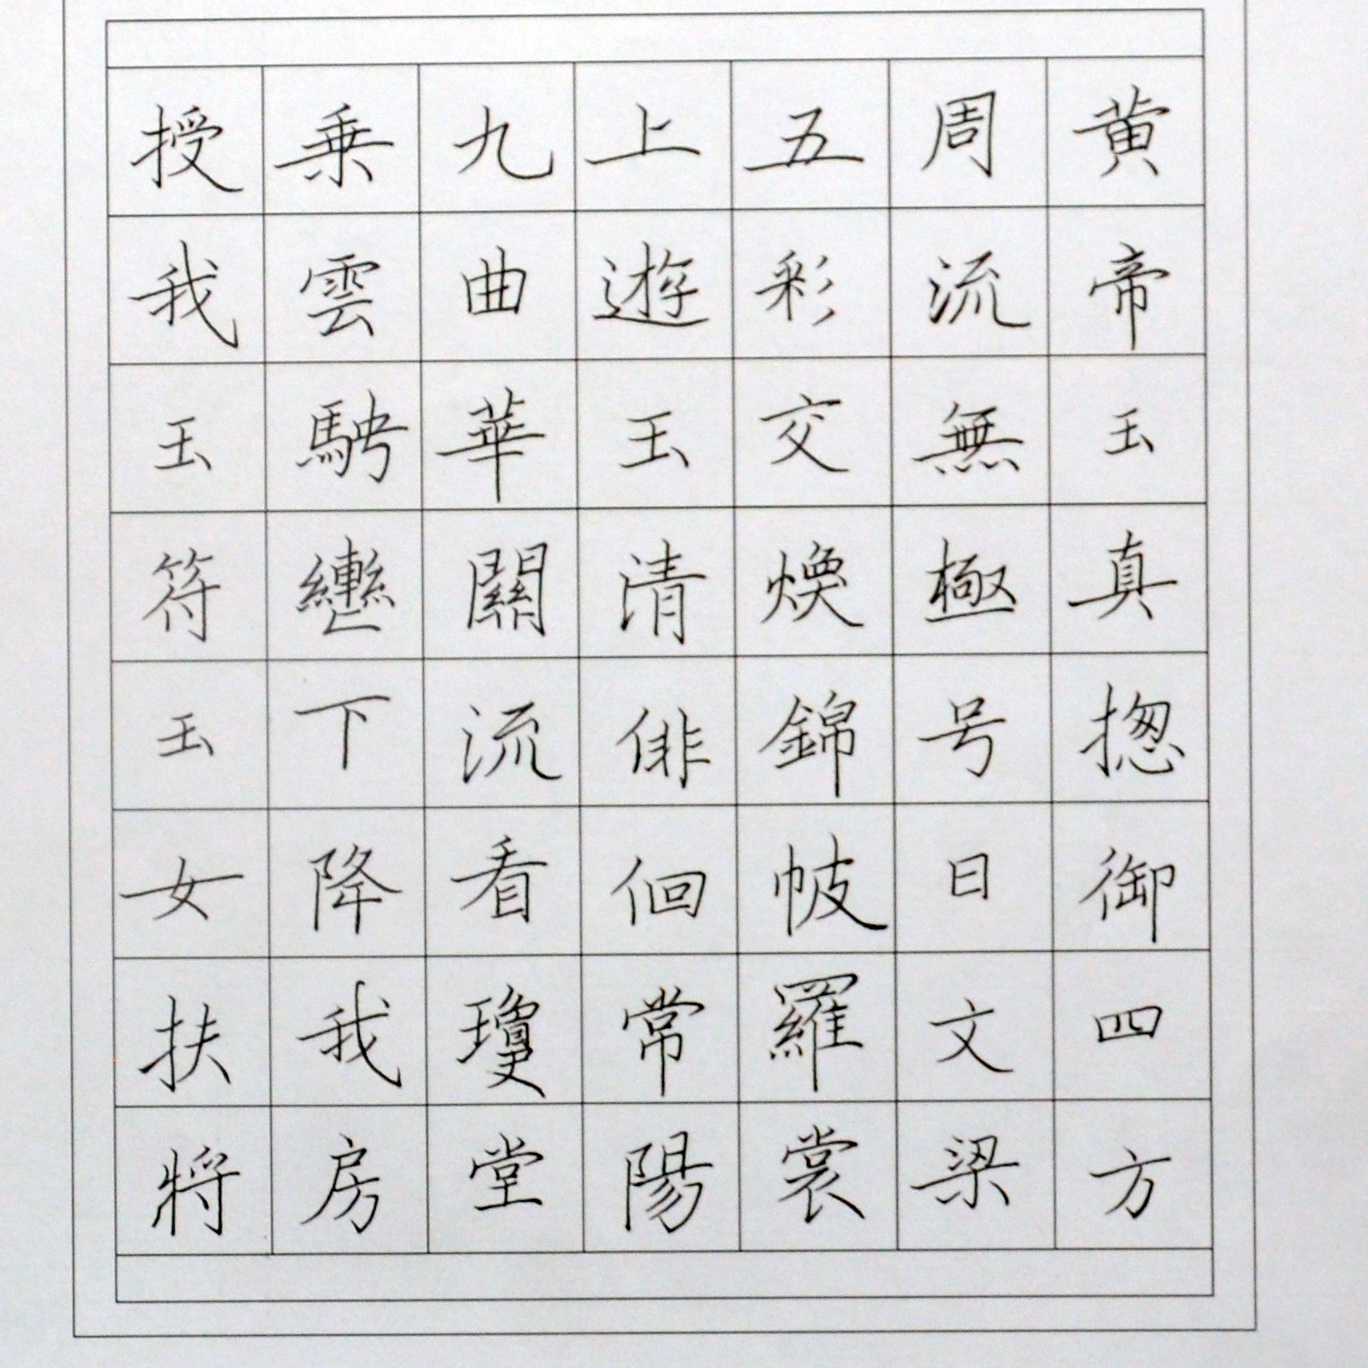 黄帝玉真揔御四方
周流無極号日文梁
五彩交煥錦帔羅裳
上遊玉清俳佪常陽
九曲華關流看瓊堂
乗雲騁轡下降我房
授我玉符玉女扶將